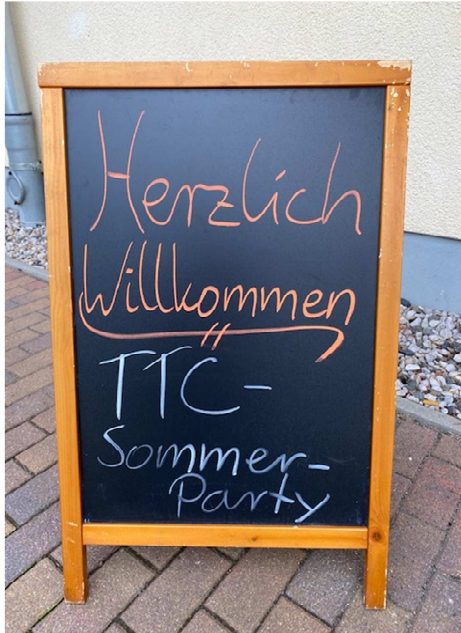 Herzlich
Willkommen
TTC-
Sommer-
Party